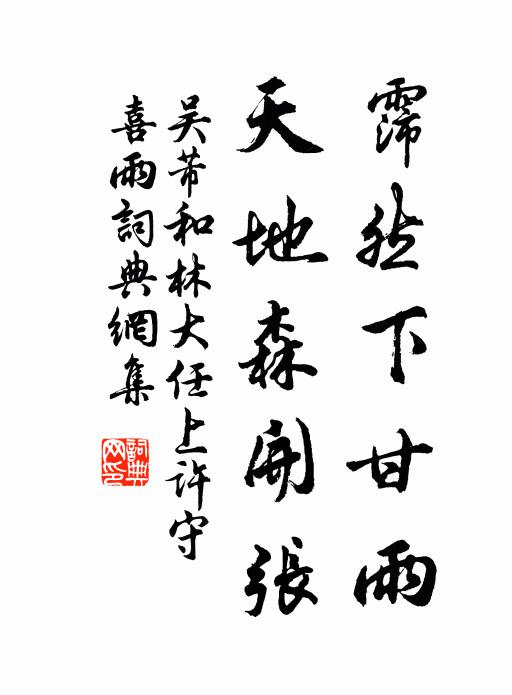 霈然下甘雨
天地森開張
吴芾和林大任上許守
喜雨詞典網集
詞典
网印